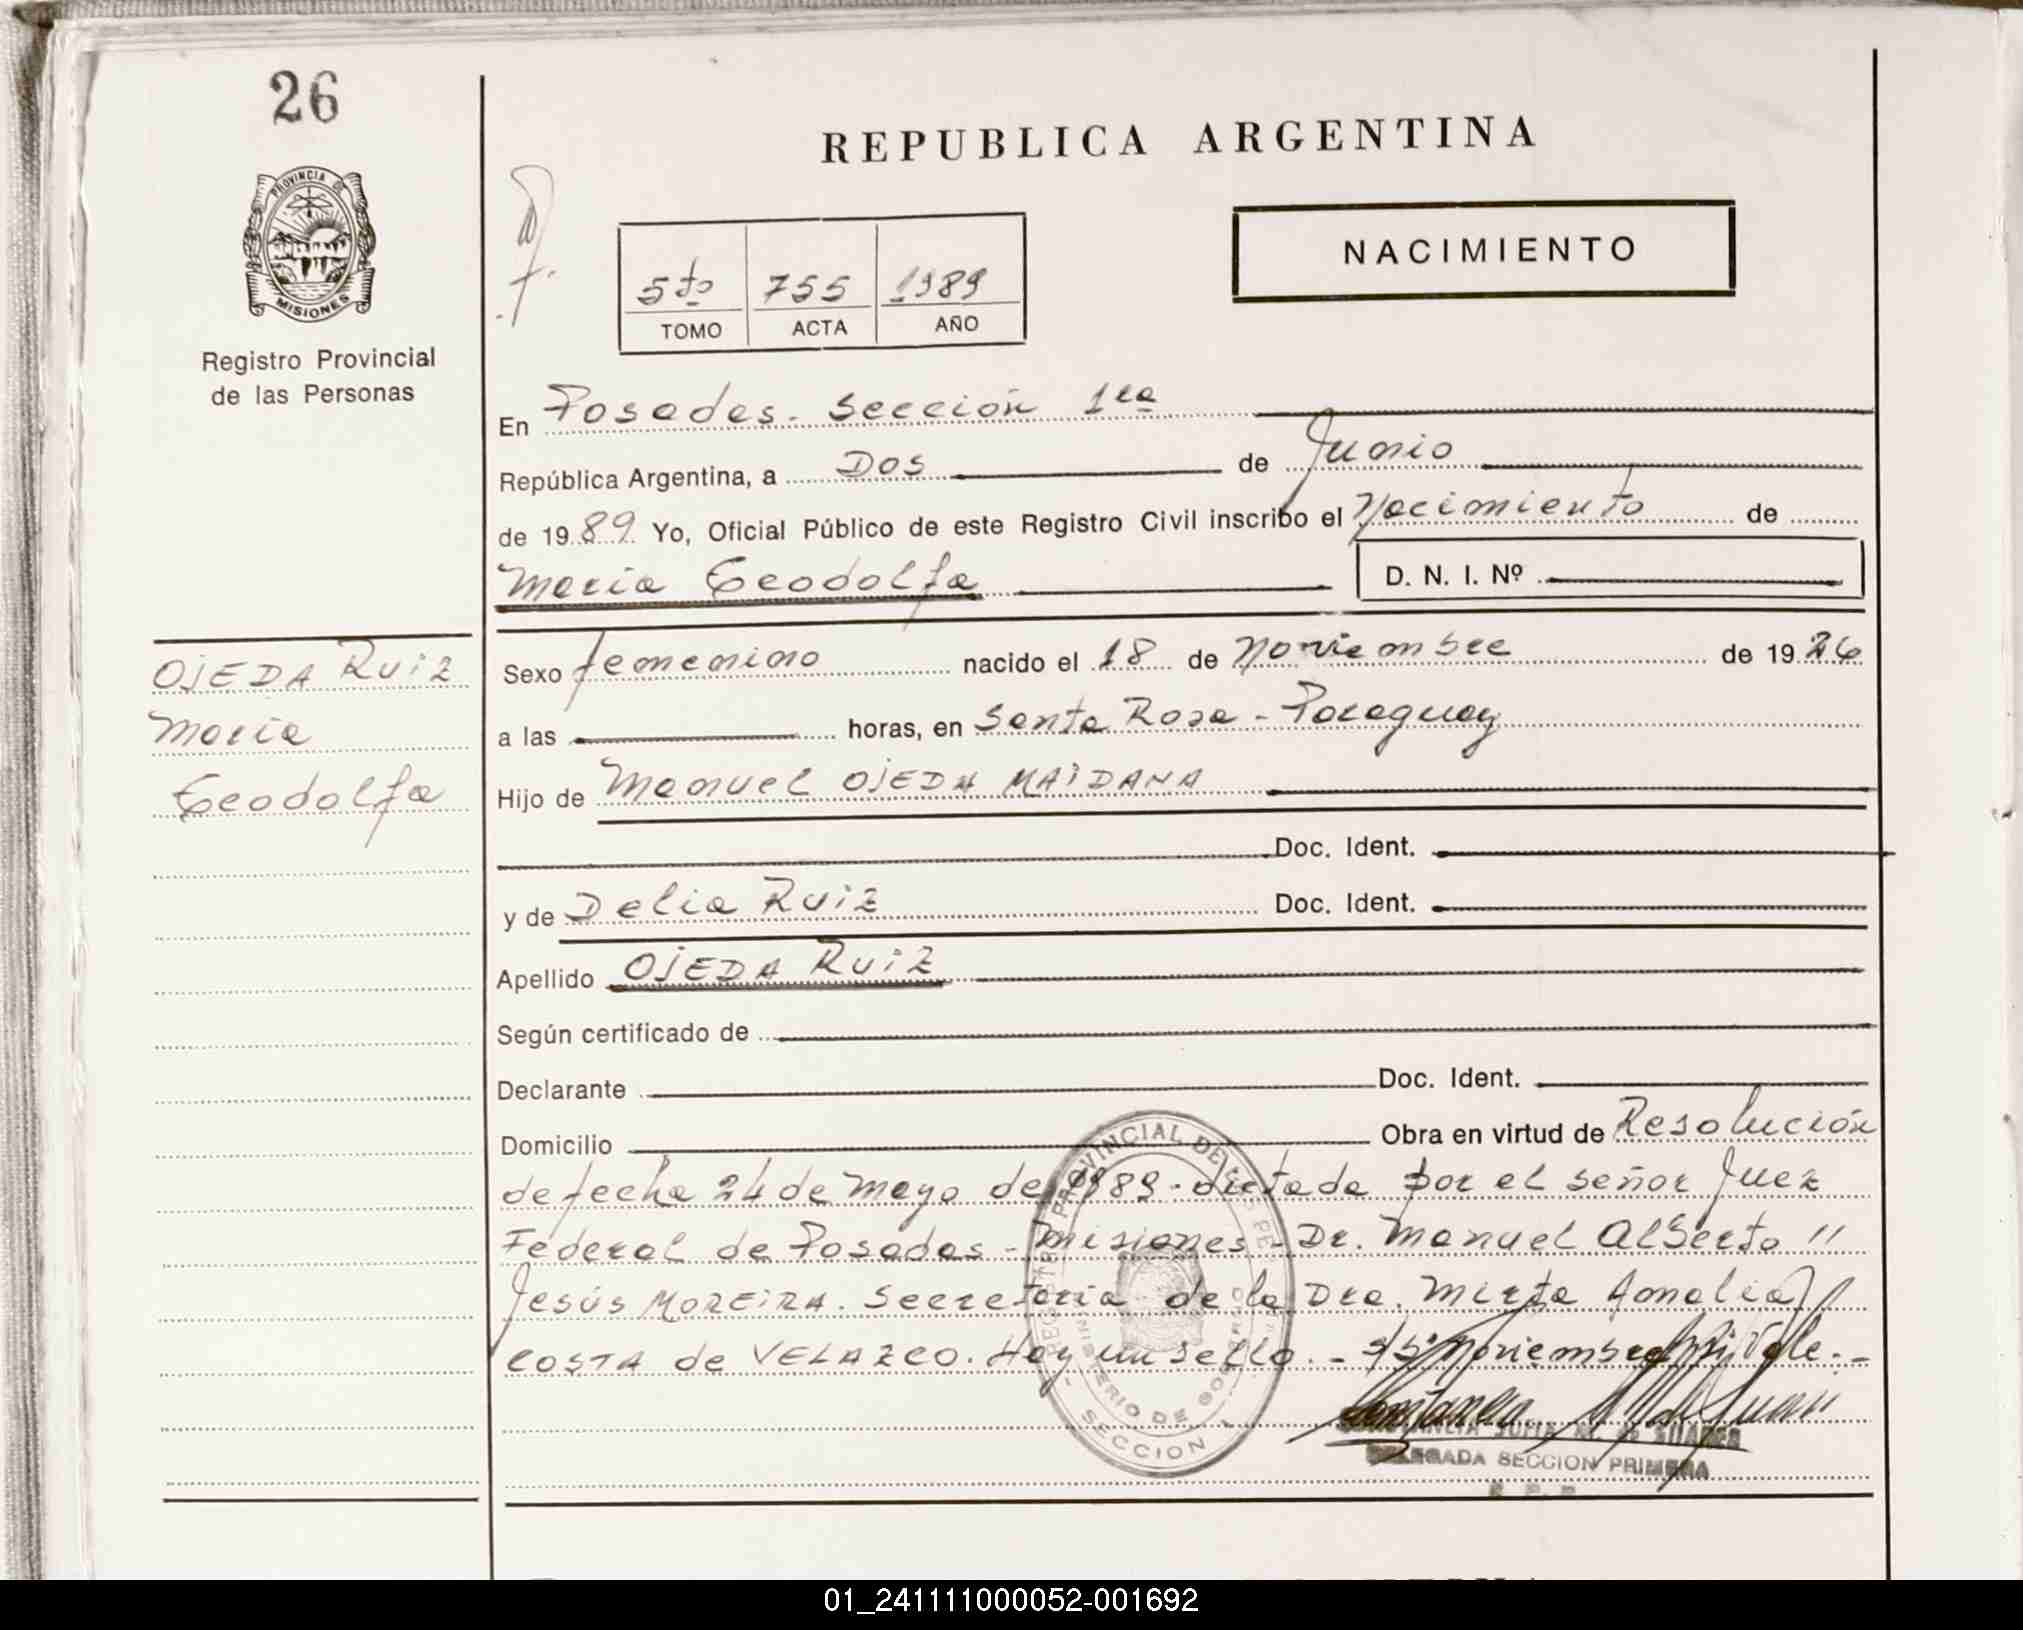 26
REPUBLICA ARGENTINA
PROVINCIA DE
MISIONES
Registro Provincial
de las Personas
5to 755 1989
TOMO ACTA AÑO
NACIMIENTO
En Posadas - Sección 1ra
República Argentina, a Dos de Junio
de 1989 Yo, Oficial Público de este Registro Civil inscribo el Nacimiento de
Maria Teodolfa D. N. I. Nº
OJEDA Ruiz
Maria
Teodolfa
Sexo femenino nacido el 18 de Noviembre de 1926
a las horas, en Santa Rosa - Paraguay
Hijo de Manuel OJEDA MAIDANA
Doc. Ident.
y de Delia Ruiz Doc. Ident.
Apellido OJEDA Ruiz
Según certificado de
Declarante Doc. Ident.
Domicilio Obra en virtud de Resolución
de fecha 24 de Mayo de 1989 - dictada por el señor Juez
Federal de Posadas - Misiones - Dr. Manuel Alberto "
Jesús MOREIRA. Secretaria de la Dra. Mirta Amalia
COSTA de VELAZCO. Hay un sello. - S/b: Noviembre Vale. -
REGISTRO PROVINCIAL DE LAS PE
MINISTERIO DE GOBIERNO
SECCION
DELEGADA SECCION PRIMERA
R. P. P.
01_241111000052-001692